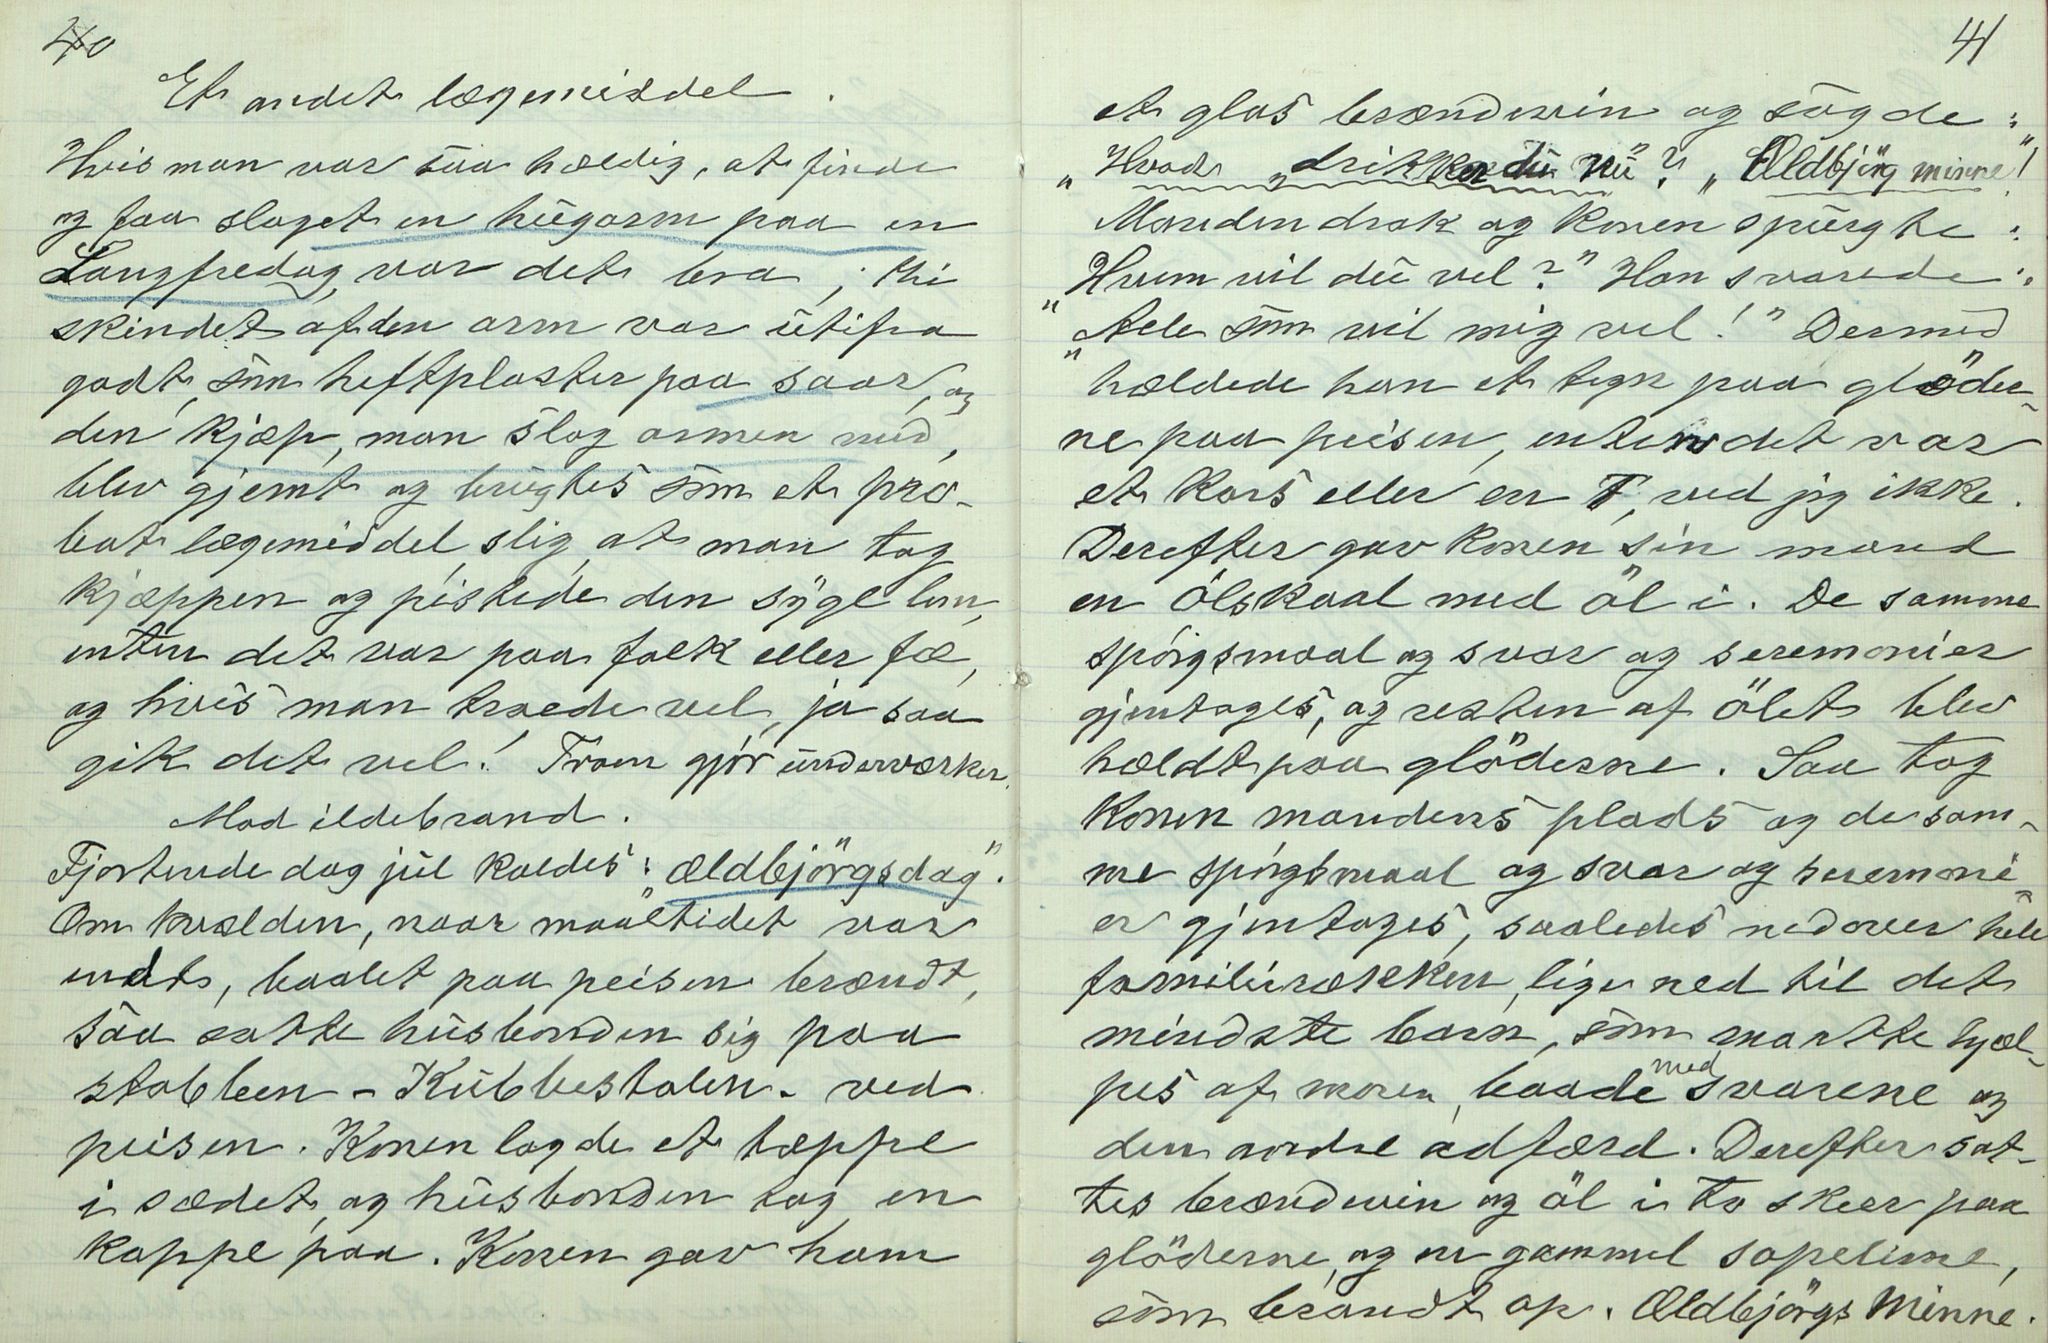 40
Et andet lægemiddel.
Hvis man var saa heldig, at finde
og faa slaget en hugorm paa en
Langfredag, var det bra; thi
skindet af den orm var utifra
godt, som heftplaster paa saar, og
den kjæp, man slog ormen med,
blev gjemt og brugtes som et pro-
bat lægemiddel, slig, at man tog
kjæppen og pistede den syge len,
enten det var paa folk eller fæ,
og hvis man troede vel, ja saa
gik det vel! Troen gjør underværker.
Mod ildebrand.
Fjortende dag jul kaldes: "ældbjörgsdag".
Om kvælden, naar maaltidet var
endt, baalet paa peisen brændt,
saa satte husbonden sig paa
stabben - Kubbestolen - ved
peisen. Konen lagde et tæppe
i sædet, og husbonden tog en
kappe paa. Konen gav ham
41
et glas brændevin og sagde:
"Hvad drikker du nu"? "Ældbjörg minne"!
Manden drak og konen spurgte:
"Hvem vil du vel?" Han svarede:
"Alle som vil mig vel!" Dermed
hældede han et tegn paa glöder-
ne paa peisen, enten det var
et kors eller en T, ved jeg ikke.
Derefter gav konen sin mand
en ölskaal med öl i. De samme
spörgsmaal og svar og seremonier
gjentoges, og resten af ölet blev
hældt paa glöderne. Saa tog
konen mandens plads og de sam-
me spörgsmaal og svar og seremoni-
er gjentoges, saaledes nedover hele
familierækken, lige ned til det
mindste barn, som maatte hjæl-
pes af moren, baade med svarene og
den andre adfærd. Derefter sat-
tes brændevin og öl i to skeer paa
glöderne, og en gammel sopelime,
som brandt op. Ældbjörgs Minne.